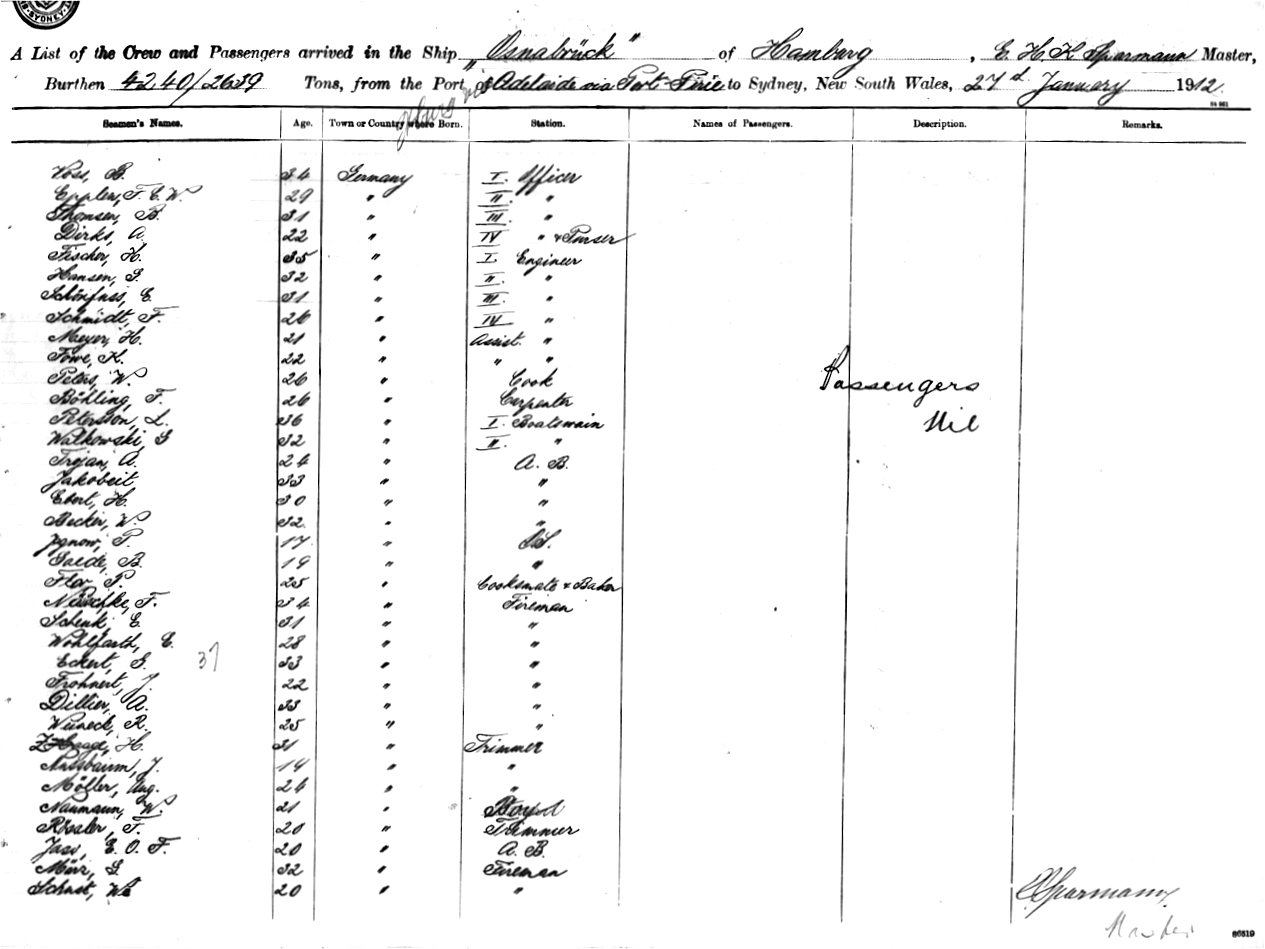 SYDNEY
A List of the Crew and Passengers arrived in the Ship "Osnabrück" of Hamburg, E. H. K. Sparmann Master,
Burthen 4240/2639 Tons, from the Port of Adelaide via Port Pirie to Sydney, New South Wales, 27d January 1912.
Seamen's Names. Age. Town or Country where Born. Station. Names of Passengers. Description. Remarks.
Voss, B. 34 Germany I. Officer
Epplen, F. E. W. 29 " II. "
Thomsen, B. 31 " III. "
Dirks, A. 22 " IV " & Purser
Fischer, H. 35 " I. Engineer
Hansen, G. 32 " II. "
Schönfuss, E. 31 " III. "
Schmidt, F. 26 " IV "
Meyer, H. 21 " Assist. "
Towe, K. 22 " " "
Peters, W. 26 " Cook Passengers
Böhling, F. 26 " Carpenter
Petersson, L. 36 " I. Boatswain Nil
Walkowski, G 32 " II. "
Trojan, A. 24 " A. B.
Jakobeit 33 " "
Ebert, H. 30 " "
Becker, W. 32. " "
P. 17 " O.S.
Gaede, B. 19 " "
Flor, P. 25 " Cooksmate & Baker
Nitschke, F. 34 " Fireman
Schenk, E. 31 " "
Wohlfarth, E. 28 " "
Eckert, G. 37 33 " "
Frohnert, J. 22 " "
Dillier, A. 33 " "
Wuneck, R. 25 " "
Haage, H. 31 " Trimmer
Nussbaum, J. 19 " "
Möller, Aug. 24 " "
Naumann, W. 21 "
Rössler, F. 20 " Trimmer
Jass, E. O. F. 20 " A. B.
Mürr, G. 32 " Fireman
Schust, W. 20 " "
Sparmann,
Master
86519